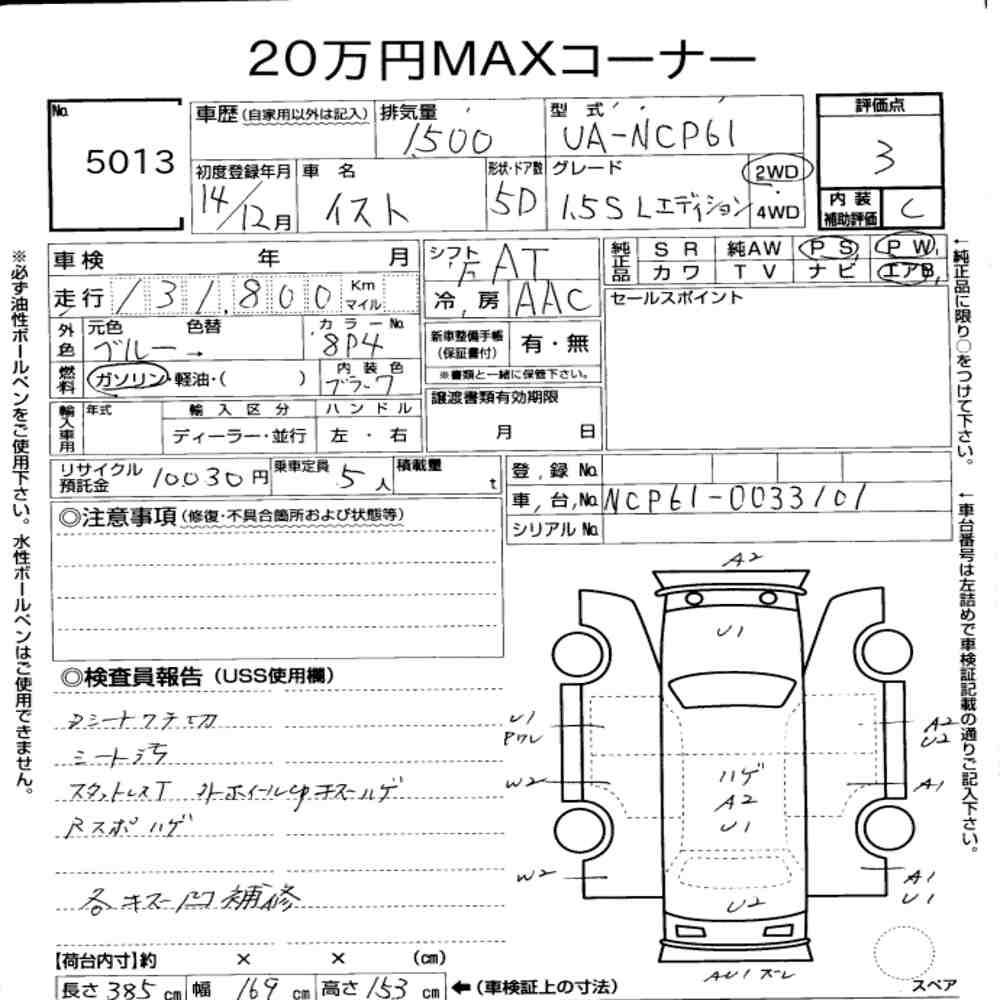 20万円MAXコーナー
No.
5013
車歴(自家用以外は記入)
排気量
1500
型式
UA-NCP61
評価点
3
初度登録年月
14/12月
車名
イスト
形状・ドア数
5D
グレード
1.5S Lエディション
2WD
4WD
内装補助評価
C
車検 年 月
走行 131,800 Km マイル
シフト
F AT
冷房
AAC
純正品
SR 純AW PS PW
カワ TV ナビ エアB
セールスポイント
外色
元色 色替
ブルー→
カラーNo.
8P4
新車整備手帳(保証書付)
有・無
※書類と一緒に保管下さい。
燃料
ガソリン・軽油・( )
内装色
ブラック
輸入車用
年式
輸入区分
ディーラー・並行
ハンドル
左・右
譲渡書類有効期限
月 日
リサイクル預託金
10030円
乗車定員
5人
積載量
t
登録No.
車台No. NCP61-0033101
シリアルNo.
◎注意事項(修復・不具合箇所および状態等)
◎検査員報告(USS使用欄)
シート汚
スタットレスT
Rスポハゲ
各キズ凹補修
A2
U1
U1
Pワレ
W2
W2
A2
U2
A1
A1
U1
ハゲ
A2
U1
U2
スペア
【荷台内寸】約 × × (cm)
長さ385cm 幅169cm 高さ153cm ←(車検証上の寸法)
※必ず油性ボールペンをご使用下さい。水性ボールペンはご使用できません。
←純正品に限り○をつけて下さい。
←車台番号は左詰めで車検証記載の通りご記入下さい。